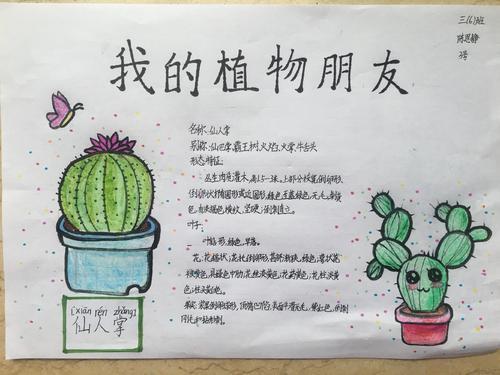 我的植物朋友
三(6)班
陈思静
3号
名称:仙人掌
别称:仙巴掌、霸王树、火焰、火掌、牛舌头
形态特征:
丛生肉质灌木,高1.5-3米。上部分枝宽倒卵形、
倒卵状椭圆形或近圆形,绿色至蓝绿色,无毛;刺黄
色,有淡褐色横纹,坚硬;倒刺直立。
叶子:
叶钻形,绿色,早落。
花:花辐状;花托倒卵形,基部渐狭,绿色;萼状花
被黄色,具绿色中肋;花丝淡黄色;花药黄色;花柱淡黄
色;柱头黄白色。
果实:浆果倒卵球形,顶端凹陷,表面平滑无毛,紫红色,
xiān rén zhǎng
仙人掌